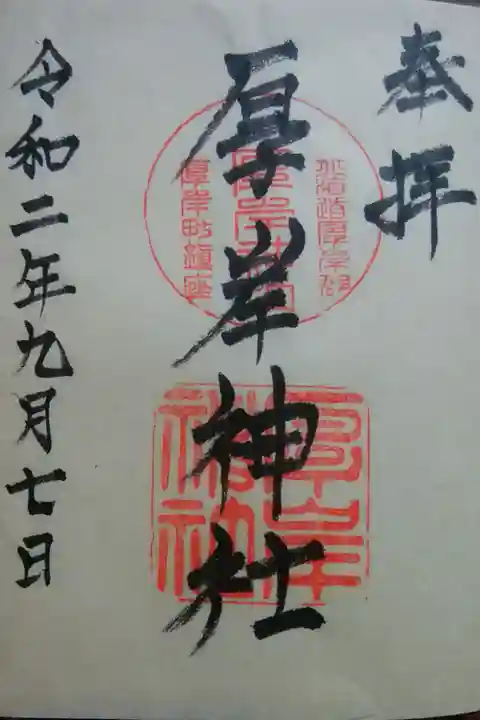 奉拝
厚岸神社
北海道厚岸郡
厚岸神社
厚岸町鎮座
令和二年九月七日